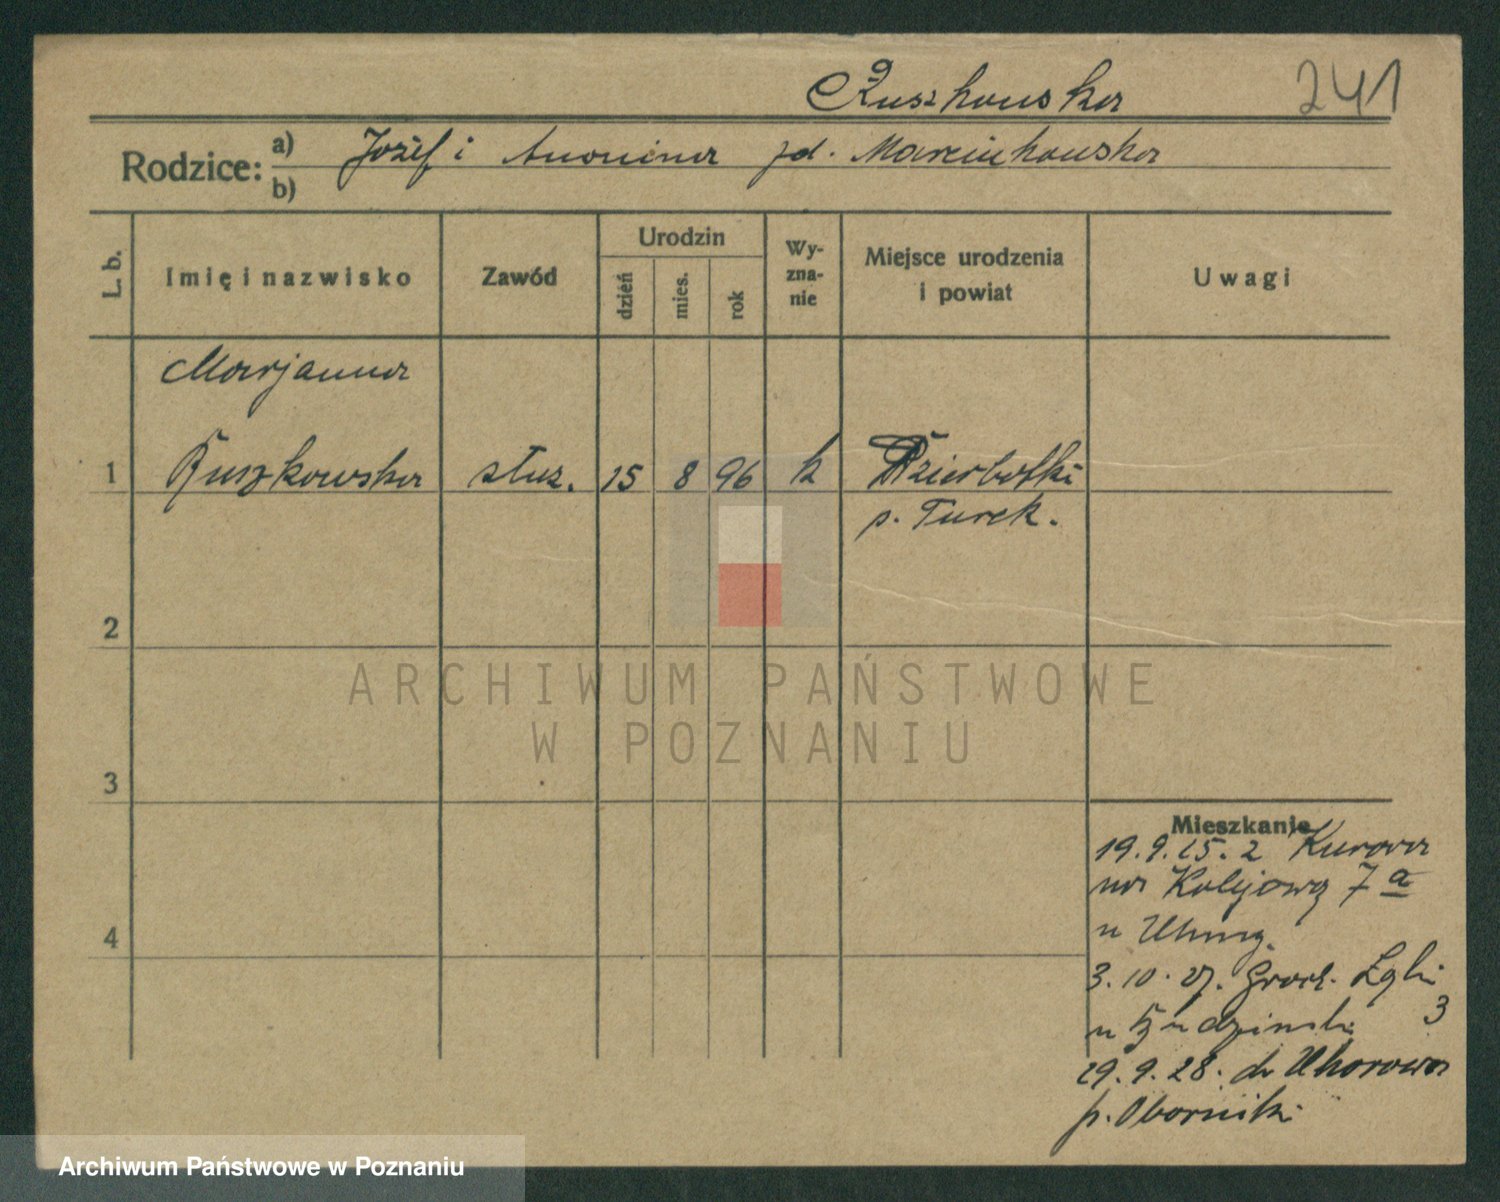 Ruszkowska
241
Rodzice:
a) Józef i Antonina zd. Marcinkowska
b)
L. b.
Imię i nazwisko
Zawód
Urodzin
dzień
mies.
rok
Wy-
zna-
nie
Miejsce urodzenia
i powiat
Uwagi
Marjanna
1 Ruszkowska służ. 15 8 96 k Dzierbotki
p. Turek.
2
3
4
Mieszkanie
19.9.25. z Kurowa
na Kolejową 7a
u
3.10.27. Groch. Łąki
u 3
29.9.28. do
p. Oborniki
ARCHIWUM PAŃSTWOWE
W POZNANIU
Archiwum Państwowe w Poznaniu